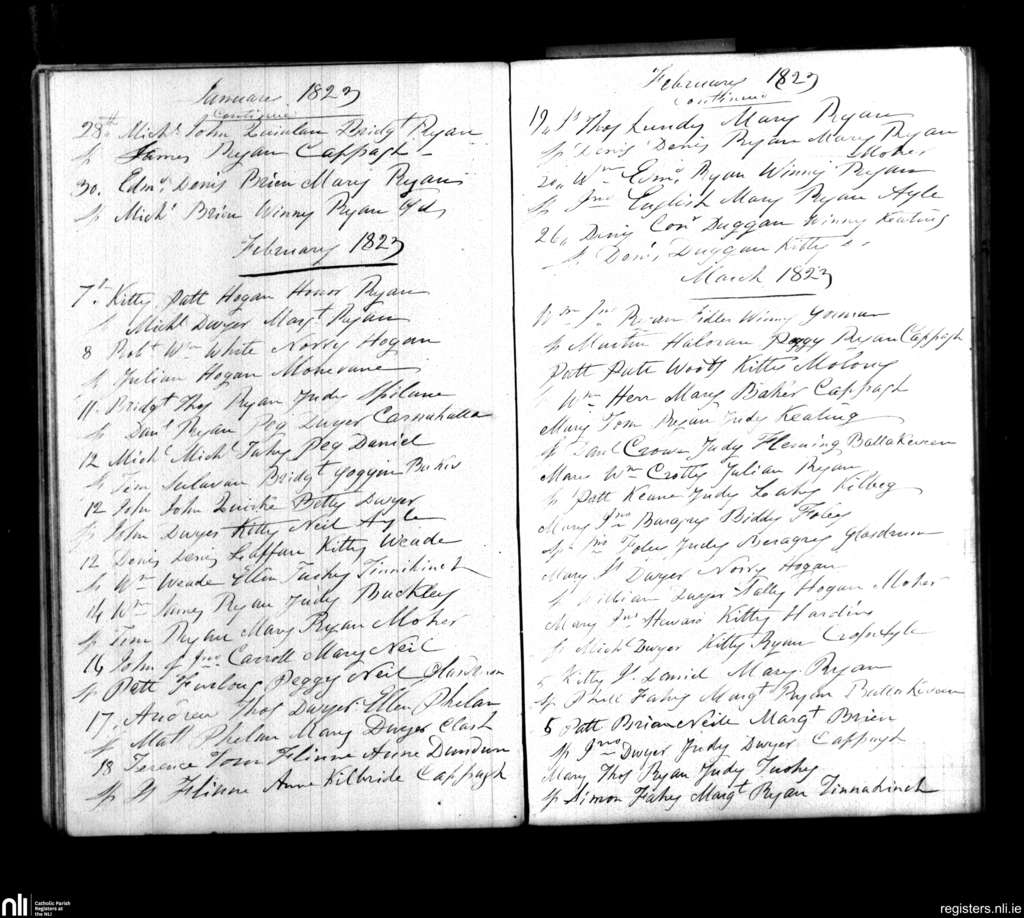 January 1823
Continued
28th Mich. John Quinlan Bridgt Ryan
Sp James Ryan Cappagh
30. Edmd. Denis Brien Mary Ryan
Sp Michl Brien Winny Ryan
February 1823
7th Kitty Patt Hogan Honor Ryan
Sp Michl Dwyer Margt Ryan
8 Robt Wm White Norry Hogan
Sp Julian Hogan Monevane
11. Bridgt Thos Ryan Judy Spilane
Sp Danl Ryan Peg Dwyer Carnahalla
12 Michl Michl Fahy Peg Daniel
Sp Tim Sulavan Bridgt
12 John John Quirke Betty Dwyer
Sp John Dwyer Kitty Neil Ayle
12 Denis Denis Laffan Kitty Weade
Sp Wm Weade Ellen Tuohy Tinnikinch
14 Wm James Ryan Judy Buckley
Sp Tom Ryan Mary Ryan Moher
16 John of Jno Carroll Mary Neil
Sp Patt Furlong Peggy Neil
17. Andrew Thos Dwyer Ellen Phelan
Sp Matt Phelan Mary Dwyer Clash
18 Terence Tom Flinne Anne Dundon
Sp Flinne Anne Kilbride Cappagh
February 1823
Continued
19th Thos Lundy Mary Ryan
Sp Denis Denis Ryan Mary Ryan
Moher
20th Wm Edmd Ryan Winny Ryan
Sp Jno English Mary Ryan Ayle
26th Denis Con Duggan Winny Keating
Sp Denis Duggan Kitty
March 1823
Wm Jno Ryan Fidler Winny
Sp Martin Haloran Peggy Ryan Cappagh
Patt Patt Woods Kitty Molony
Wm Herr Mary Baker Cappagh
Mary Tom Ryan Judy Keating
Sp Danl Crowe Judy Fleming Ballakeveen
Mary Wm Crotty Julian Ryan
Sp Patt Keane Judy Leahy Kilbeg
Mary Jno Baragry Biddy Foley
Sp Jno Foley Judy Baragry Glasdrum
Mary Dwyer Norry Hogan
Sp William Dwyer Nally Hogan Moher
Mary Jno Steward Kitty Harding
Sp Michl Dwyer Kitty Ryan
5 Kitty Daniel Mary Ryan
Sp Phill Fahy Margt Ryan Ballakeveen
5 Patt Brian Neile Margt Brien
Sp Jno Dwyer Judy Dwyer Cappagh
Mary Thos Ryan Judy Tuohy
Sp Simon Fahy Margt Ryan Tinnakinch
nli
Catholic Parish
Registers at
the NLI
registers.nli.ie